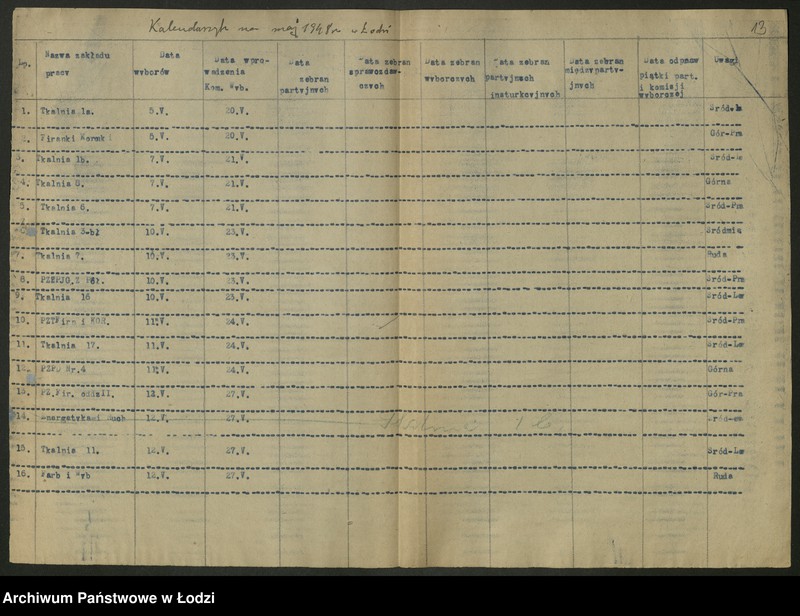 Kalendarzyk na maj 1948 r w Łodzi
13
Lp.
Nazwa zakładu pracy
Data wyborów
Data wprowadzenia Kom. Wyb.
Data zebran partyjnych
Data zebran sprawozdawczych
Data zebran wyborczych
Data zebran partyjnych insturkcyjnych
Data zebran międzypartyjnych
Data odpraw piątki part. i komisji wyborczej
Uwagi
1. Tkalnia 1a. 5.V. 20.V. Sród-
2. Firanki Koronki 5.V. 20.V. Gór-Pra
3. Tkalnia 1b. 7.V. 21.V. Sród-
4. Tkalnia 5. 7.V. 21.V. Górna
5. Tkalnia 6. 7.V. 21.V. Sród-Pra
Tkalnia 3-bż 10.V. 23.V. Sródmie
7. Tkalnia 7. 10.V. 23.V. Ruda
8. 10.V. 23.V. Sród-Pra
9. Tkalnia 16 10.V. 23.V. Sród-Lw
10. 11.V. 24.V. Sród-Pra
11. Tkalnia 17. 11.V. 24.V. Sród-Lw
12. PZPO Nr.4 11.V. 24.V. Górna
13. PZ.Fir. oddzII. 12.V. 27.V. Gór-Pra
14. Ruch 12.V. 27.V.
15. Tkalnia 11. 12.V. 27.V. Sród-Lw
16. Farb i Wyb 12.V. 27.V. Ruda
Archiwum Państwowe w Łodzi